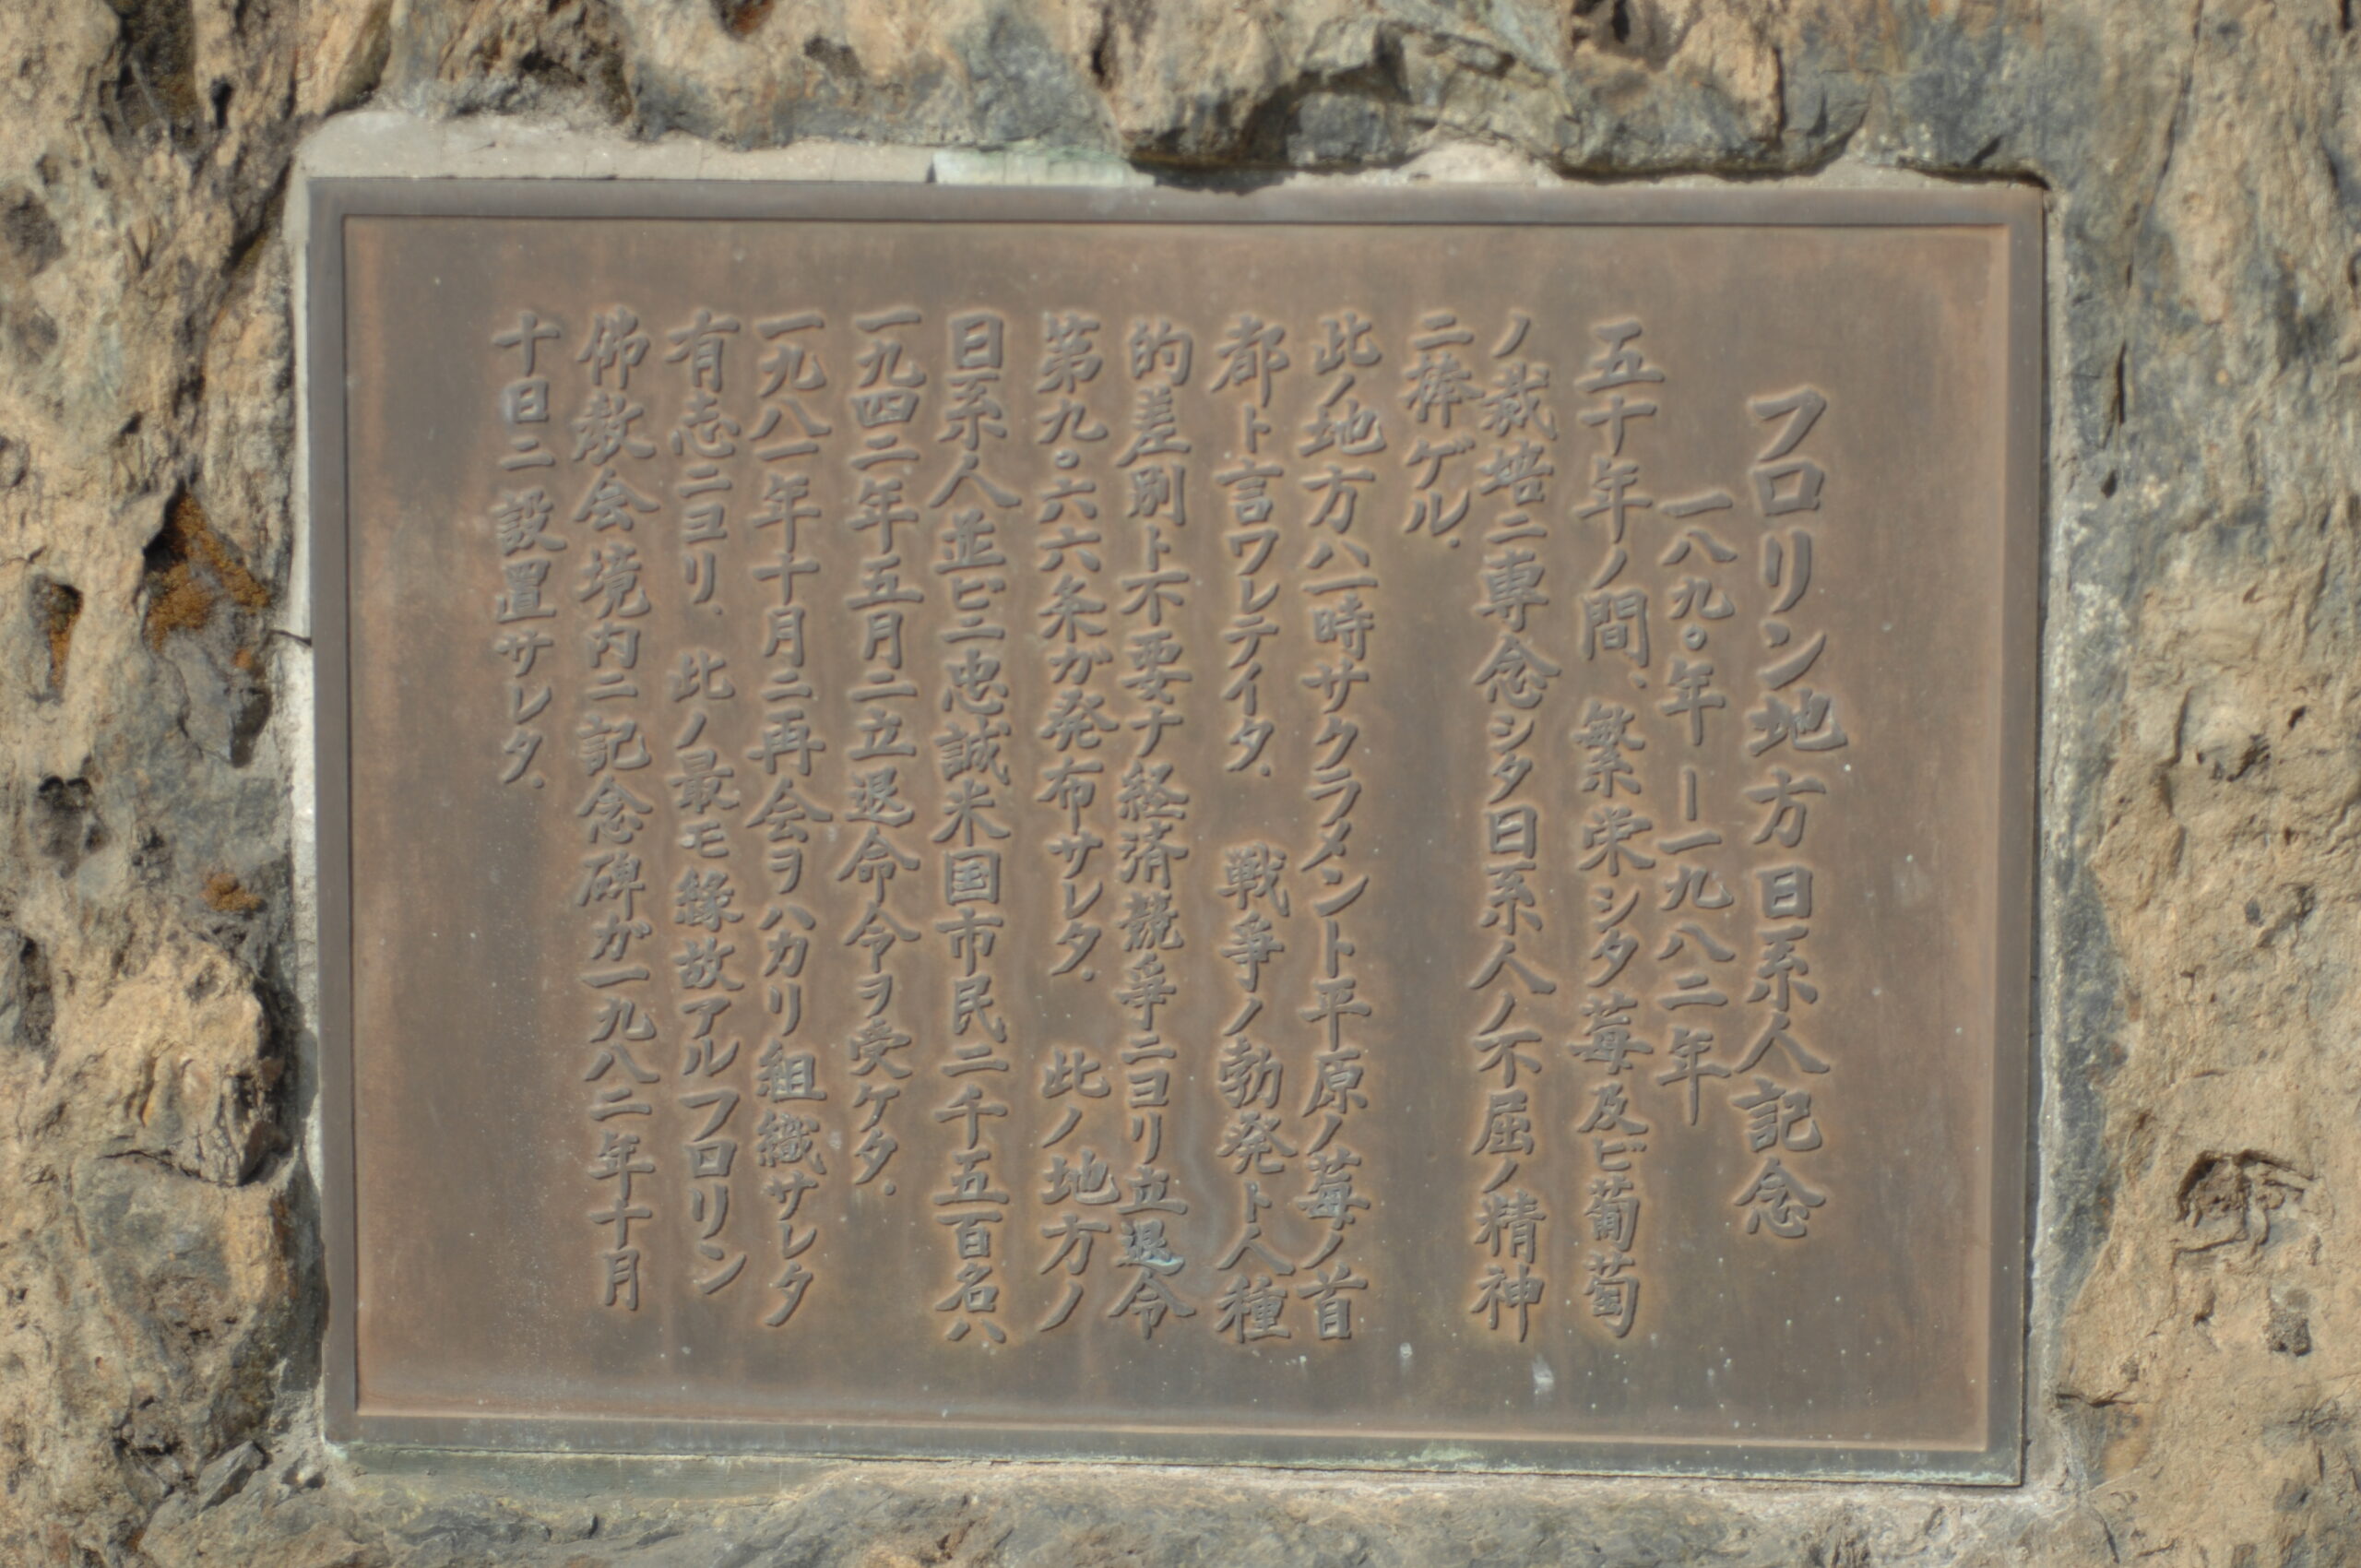 フロリン地方日系人記念
一八九〇年ー一九八二年
五十年ノ間、繁栄シタ莓及ビ葡萄
ノ栽培ニ専念シタ日系人ノ不屈ノ精神
ニ捧ゲル.
此ノ地方ハ一時サクラメント平原ノ莓ノ首
都ト言ワレテイタ. 戦争ノ勃発ト人種
的差別ト不要ナ経済競争ニヨリ立退令
第九〇六六条ガ発布サレタ. 此ノ地方ノ
日系人並ビニ忠誠米国市民二千五百名ハ
一九四二年五月ニ立退命令ヲ受ケタ.
一九八一年十月ニ再会ヲハカリ組織サレタ
有志ニヨリ、此ノ最モ縁故アルフロリン
佛教会境内ニ記念碑ガ一九八二年十月
十日ニ設置サレタ.